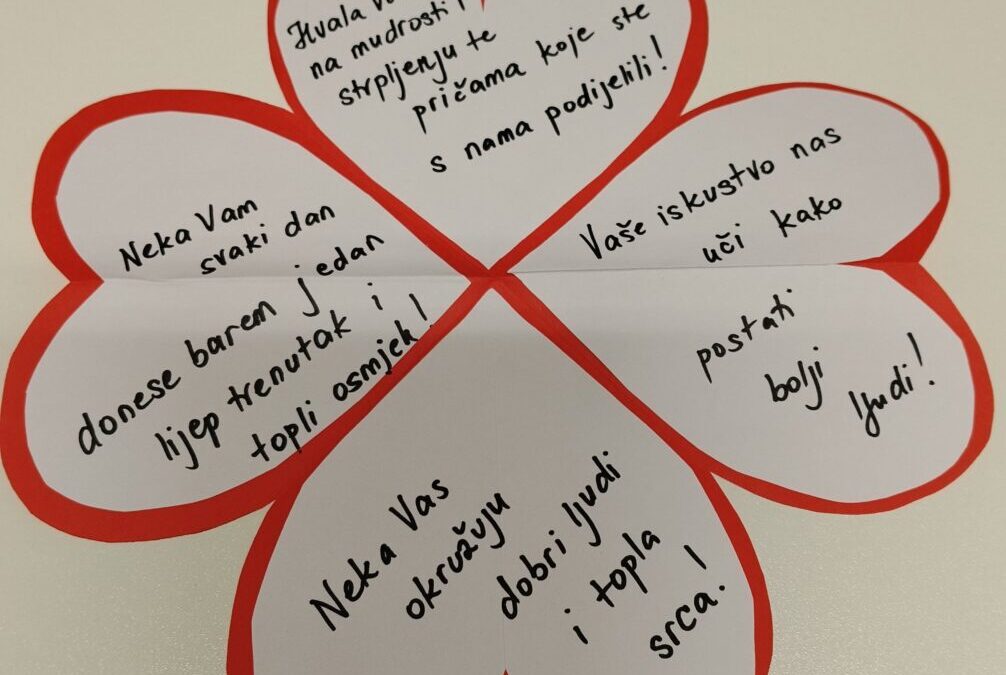 Hvala
na mudrosti i
strpljenju te
pričama koje ste
s nama podijelili!
Neka Vam
svaki dan
donese barem jedan
lijep trenutak i
topli osmjeh!
Vaše iskustvo nas
uči kako
postati
bolji
ljudi!
Neka Vas
okružuju
dobri ljudi
i topla
srca!